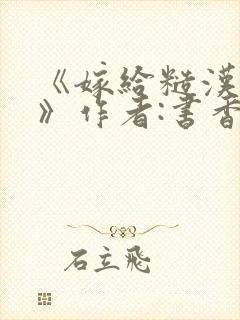 《嫁给糙漢
》作者:書香
石立飛